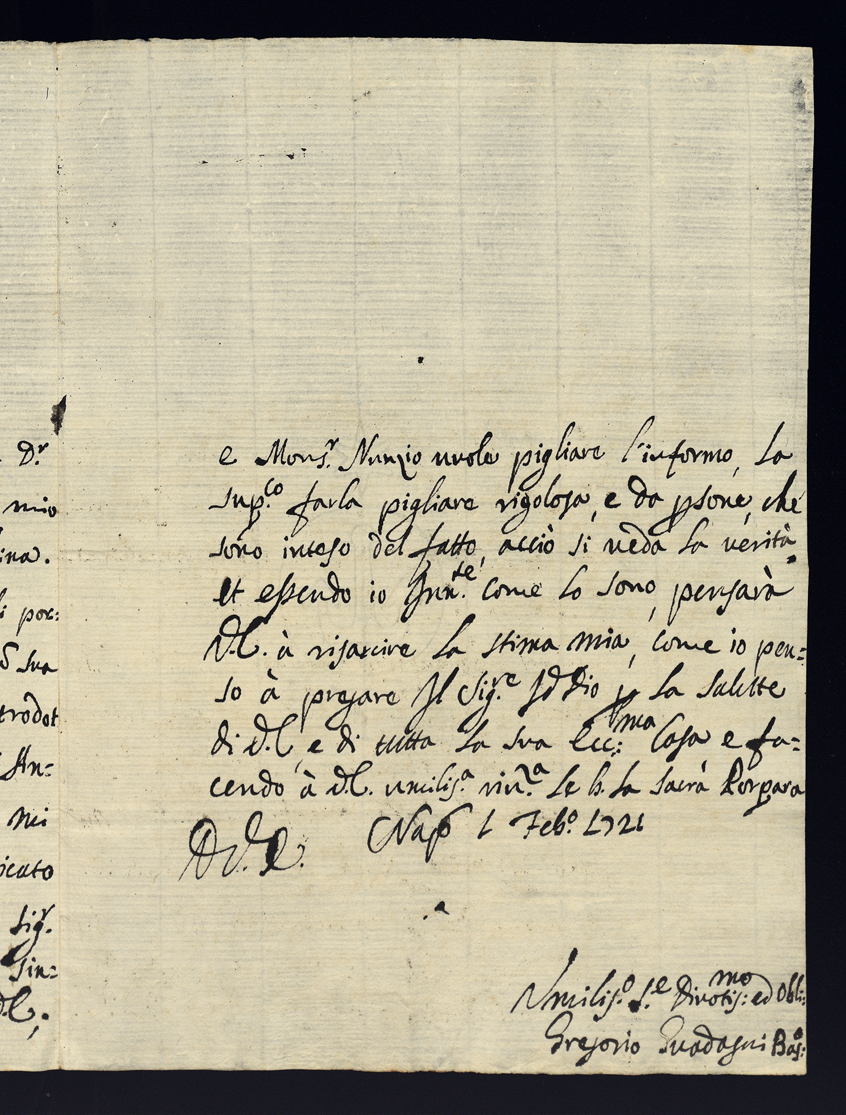 Dr.
mio
ina.
i por:
sua
trodot
An:
mi
icato
Sigr.
Sin:
V.E.;
e Monsr. Nunzio vuole pigliare l'informo, La
sup.co farla pigliare rigolosa, e da psone, che
sono inteso del fatto, acciò si veda la verità
et essendo io Inn.te come lo sono, pensarà
V.E. à risarcire la stima mia, come io pen=
so à pregare Il Sig.re Iddio p la salutte
di V.E., e di tutta la sua Ecc:ma Casa e fa=
cendo à V.E. umilis.a riv.a le b. la sacrà Porpara
D.V.E. Nap. 1 Feb.o 1721
Umilis.o S.e Divotis:mo ed Obli:
Gregorio Guadagni Bas:o